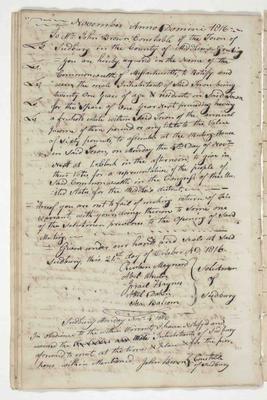 November Anno Domini 1816
To Mr. John Brown Constable of the Town of
Sudbury in the County of Middlesex Greeting
You are hereby required in the Name of the
Commonwealth of Massachusetts to Notify and
warn the male Inhabitants of said Town being
twenty one years of age & resident in Said Town
for the Space of One year Next preceding having
a freehold estate within Said Town of the annual
Income of three pounds or any estate to the Value
of Sixty pounds to assemble at the Meeting House
in Said Town, on Monday the 4th day of Novr.
Next at o'clock in the afternoon to give in
their Votes for a representative of the people of
Said Commonwealth in the Congress of the
United States for the Middlesex district
Hereof you are not to fail of making return of this
warrant with your doings thereon to Some one
of the Selectmen previous to the opening of Said
Meeting
Given under our hands and Seals at Said
Sudbury this 21st day of October AD 1816.
Reuben Maynard
Israel Haynes
Selectmen
of
Sudbury
Sudbury Monday Novr. 4 1816
In obedience to the within Warrant I have Notified and
warned the Male Inhabitants of Sudbury
to meet at the time & place & for the pur-
pose within Mentioned John Brown Constable
of Sudbury